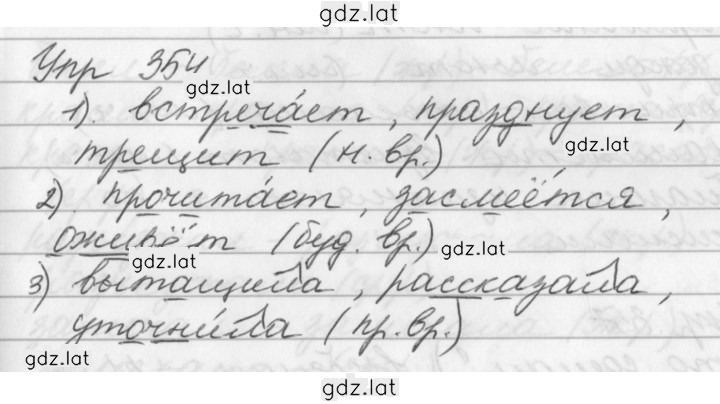 gdz.lat
Упр 354
gdz.lat
1). встреча́ет, празднует,
gdz.lat
трещит (н. вр.)
2). прочита́ет, засмеётся,
оживёт (буд. вр.)
gdz.lat
gdz.lat
3) вытащила, рассказала,
уточни́ла (пр. вр.)
gdz.lat
gdz.lat